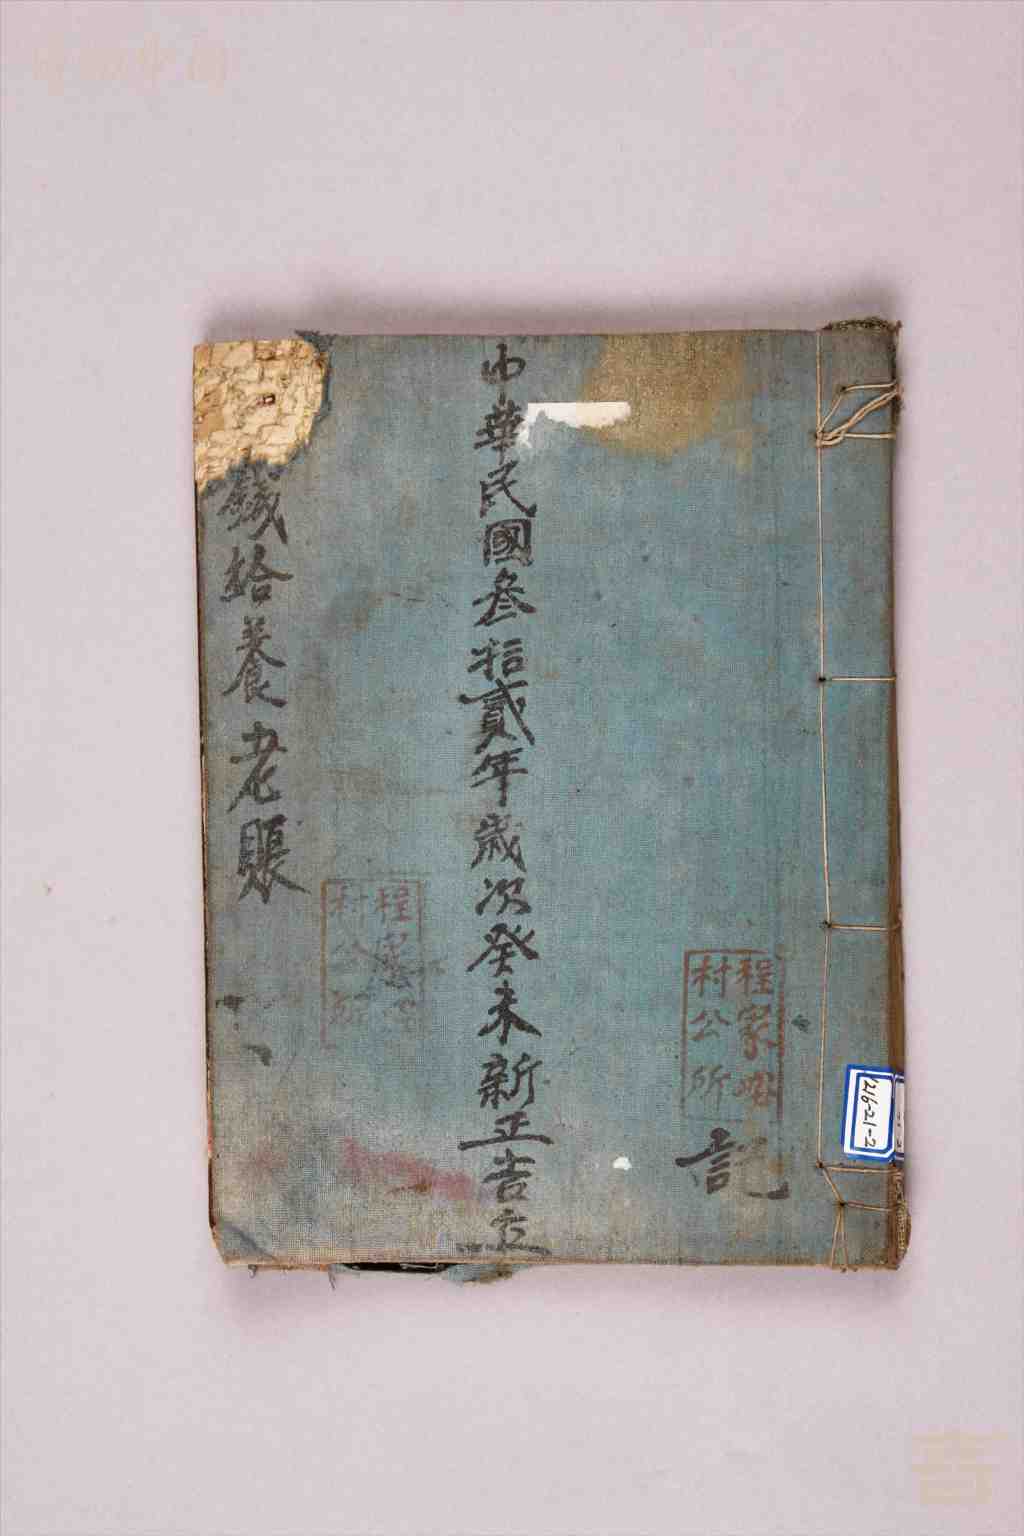 記
程家峪
村公所
中華民國叁拾貳年歲次癸未新正吉立
程家
村公所
錢給養老賬
216-21-2